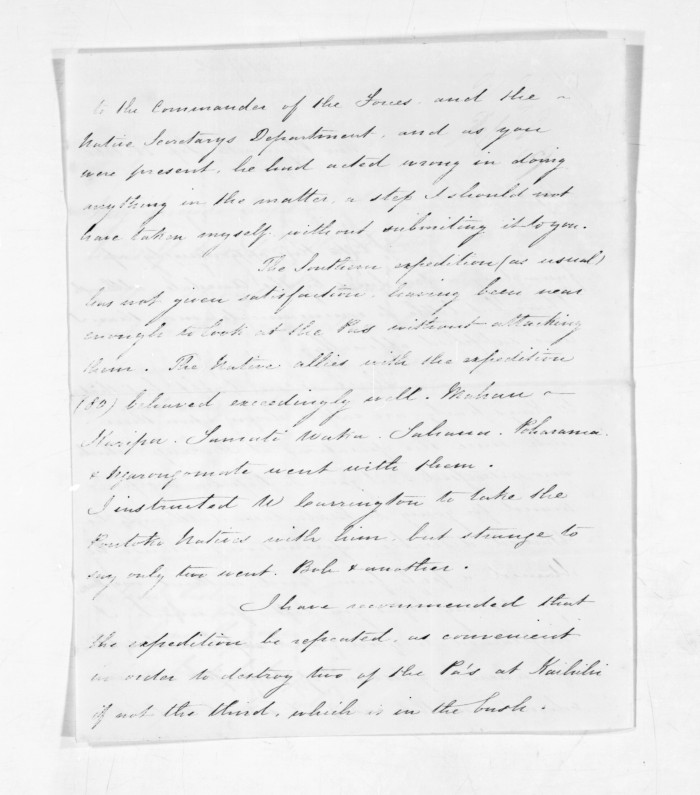 to the Commander of the Forces and the
Native Secretarys Department, and as you
were present, he had acted wrong in doing
anything in the matter, a step I should not
have taken myself without submiting it to you.
The Southern expedition (as usual)
has not given satisfaction, having been near
enough to look at the Pas without attacking
them. The Native allies with the expedition
(80) behaved exceedingly well. Mahau
Karipa. Tamati Waka. Tahana. Poharama
& Ngarongomate went with them.
I instructed W Carrington to take the
Poutoko Natives with him, but strange to
say only two went. Bob & another.
I have recommended that
the expedition be repeated, as convenient
in order to destroy two of the Pa's at Kaihihi
if not the third, which is in the bush.